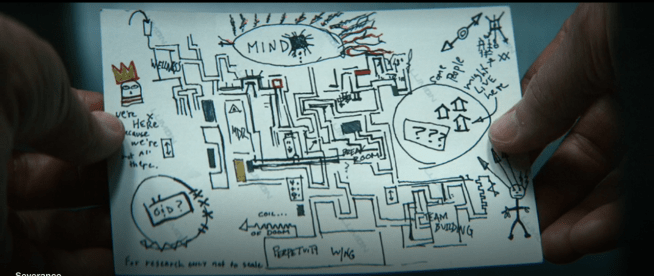 MIND
WELLNESS
SOME
PEOPLE
MIGHT
LIVE
HERE
WE'RE
HERE
BECAUSE
WE'RE
NOT ALL
THERE.
MDR
BREAK
ROOM
?
???
O&D?
COIL...
OF DOOM
TEAM
BUILDING
PERPETUITY WING
FOR RESEARCH ONLY NOT TO SCALE
Severance